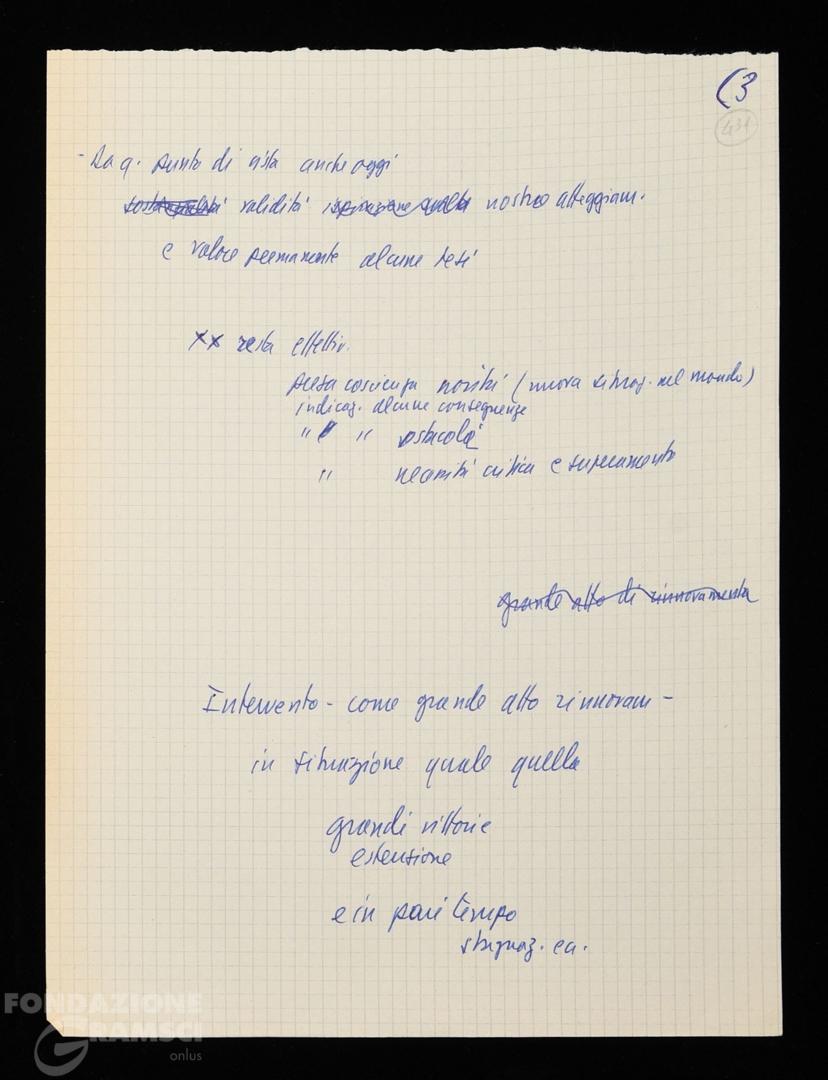 (3
431
- Da q. punto di vista anche oggi
validità ispirazione nostro atteggiam.
e valore permanente alcune tesi
xx resta effettiv.
presa coscienza novità (nuova situaz. nel mondo)
indicaz. alcune conseguenze
" " ostacoli
" necessità critica e superamento
grande atto di rinnovamento
Intervento - come grande atto rinnovam -
in situazione quale quella
grandi vittorie
estensione
e in pari tempo
stagnaz. ea.
FONDAZIONE
GRAMSCI
onlus